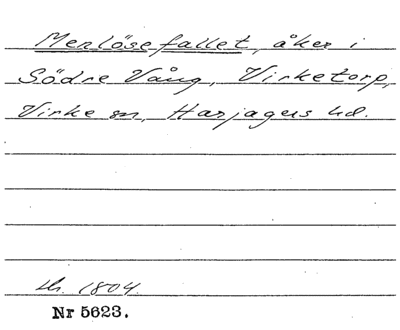 Menlösefallet, åker i
Södre Vång, Virketorp,
Virke sn, Harjagers hd.
Kr. 1804.
Nr 5623.